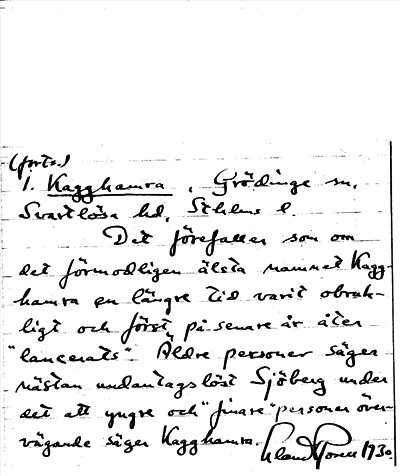 (forts.)
1. Kagghamra, Grödinge sn,
Svartlösa hd, Sthlms l.
Det förefaller som om
det förmodligen älsta namnet Kagg-
hamra en längre tid varit obruk-
ligt och först på senare år åter
"lancerats". Äldre personer säger
nästan undantagslöst Sjöberg under
det att yngre och "finare" personer över-
vägande säger Kagghamra.
1930